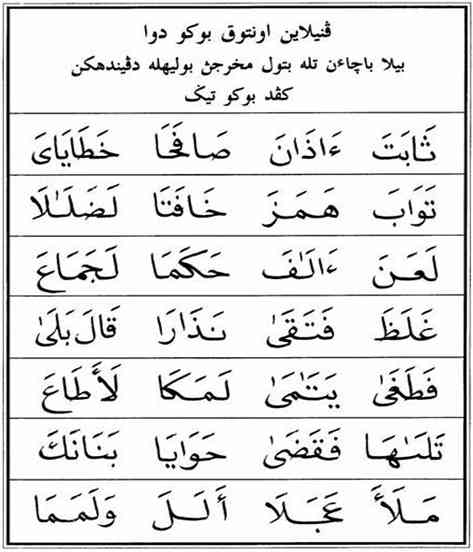 ڤنيلاين اونتوق بوكو دوا
بيلا باچاءن تله بتول مخرجڽ بوليهله دڤيندهكن
كڤد بوكو تيݢ
ثَابَتَ ءَاذَانَ صَافَحَا خَطَايَاىَ
تَوَابَ هَمَزَ خَافَتَا لَضَلَٰلَا
لَعَنَ ءَالَٰفَ حَكَمَا لَجَمَاعَ
غَلَظَ فَتَقَىٰ نَذَارَا قَالَ بَلَىٰ
فَطَغَىٰ يَتَٰمَىٰ لَمَكَا لَأَطَاعَ
تَلَىٰهَا فَقَضَىٰ حَوَايَا بَنَانَكَ
مَلَأَ عَجَلَا أَلَلَ وَلَمَمَا